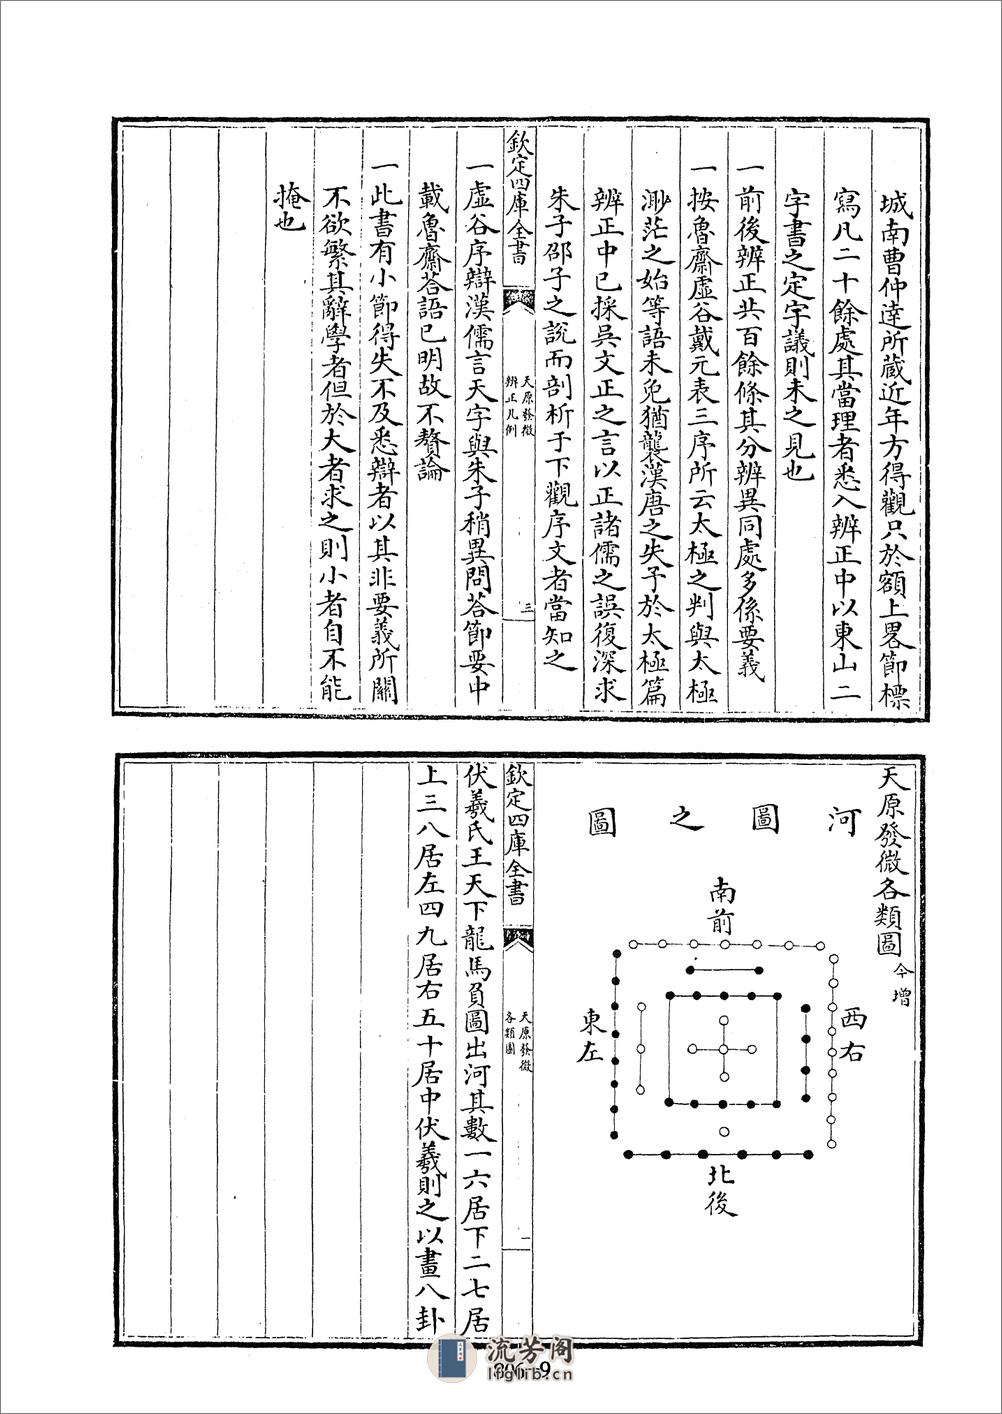 城南曹仲逵所藏近年方得觀只於額上畧節標
寫凡二十餘處其當理者悉入辨正中以東山二
字書之定宇議則未之見也
一前後辨正共百餘條其分辨異同處多係要義
一按魯齋虛谷戴元表三序所云太極之判與太極
渺茫之始等語未免猶襲漢唐之失予於太極篇
辨正中已採吳文正之言以正諸儒之誤復深求
朱子邵子之說而剖析于下觀序文者當知之
欽定四庫全書
天原發微
辨正凡例
三
一虛谷序辯漢儒言天字與朱子稍異問荅節要中
載魯齋荅語已明故不贅論
一此書有小節得失不及悉辯者以其非要義所關
不欲繁其辭學者但於大者求之則小者自不能
掩也
天原發微各類圖今增
河圖之圖
南前
西右
東左
北後
欽定四庫全書
天原發微
各類圖
一
伏羲氏王天下龍馬負圖出河其數一六居下二七居
上三八居左四九居右五十居中伏羲則之以畫八卦
流芳阁
lgfrbrd.com.cn